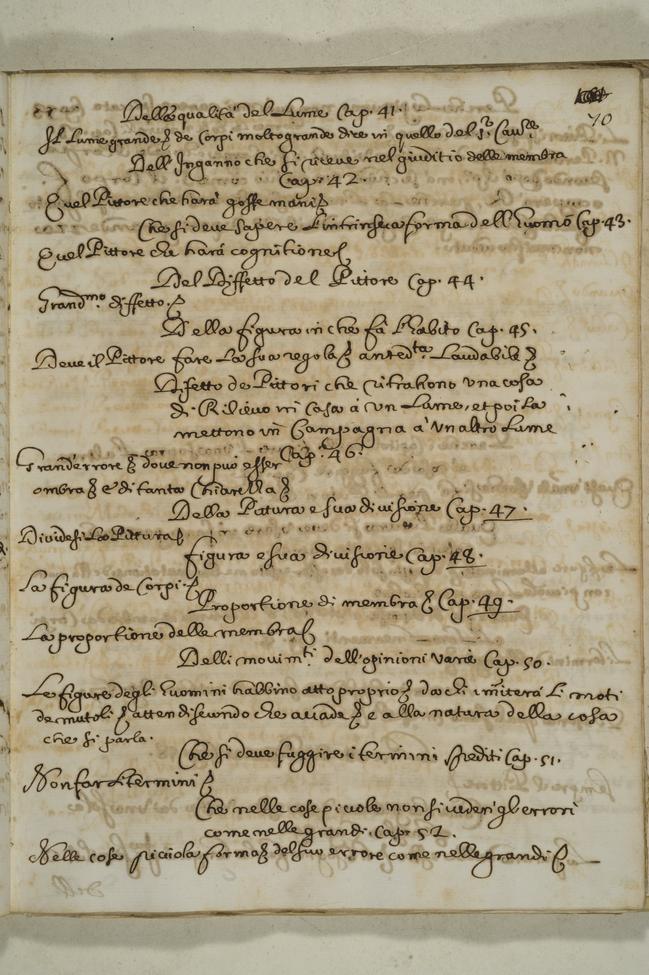 70
Della qualità del Lume Cap. 41.
Il Lume grande & de Corpi molto grande dire in quello del
Dell Inganno che si riceve nel giuditio delle membra
Cap. 42.
Quel Pittore che harà goffe mani &
Che si deve sapere l'intrinseca forma dell'huomo Cap. 43.
Quel Pittore che harà cognitione &
Del Diffetto del Pittore Cap. 44.
Grand.mo diffetto &
Della figura in che fà l'habito Cap. 45.
Deve il Pittore fare La sua regola & anted.ta Laudabile &
Difetto de Pittori che ritrahono una cosa
di Rilievo in Casa à un Lume, et poi La
mettono in Campagna à un altro Lume
Cap. 46.
Grand'errore & dove non può esser
ombra & è di tanta Chiarella &
Della Pittura e sua divisione Cap. 47.
Dividesi La Pittura &
figura e sua divisione Cap. 48.
La figura de Corpi &
Proportione di membra & Cap. 49.
La proportione delle membra &
Delli movim.ti dell'opinioni varie Cap. 50.
Le figure degli huomini habbino atto proprio & da chi imiterà Li moti
de mutoli & attendi secundo che accade & e alla natura della cosa
che si parla.
Che si deve fuggire i termini spediti Cap. 51.
Non far Li termini &
Che nelle cose picciole non si veden gl'errori
come nelle grandi. Cap. 52.
Nelle cose picciola forma & del suo errore come nelle grandi &